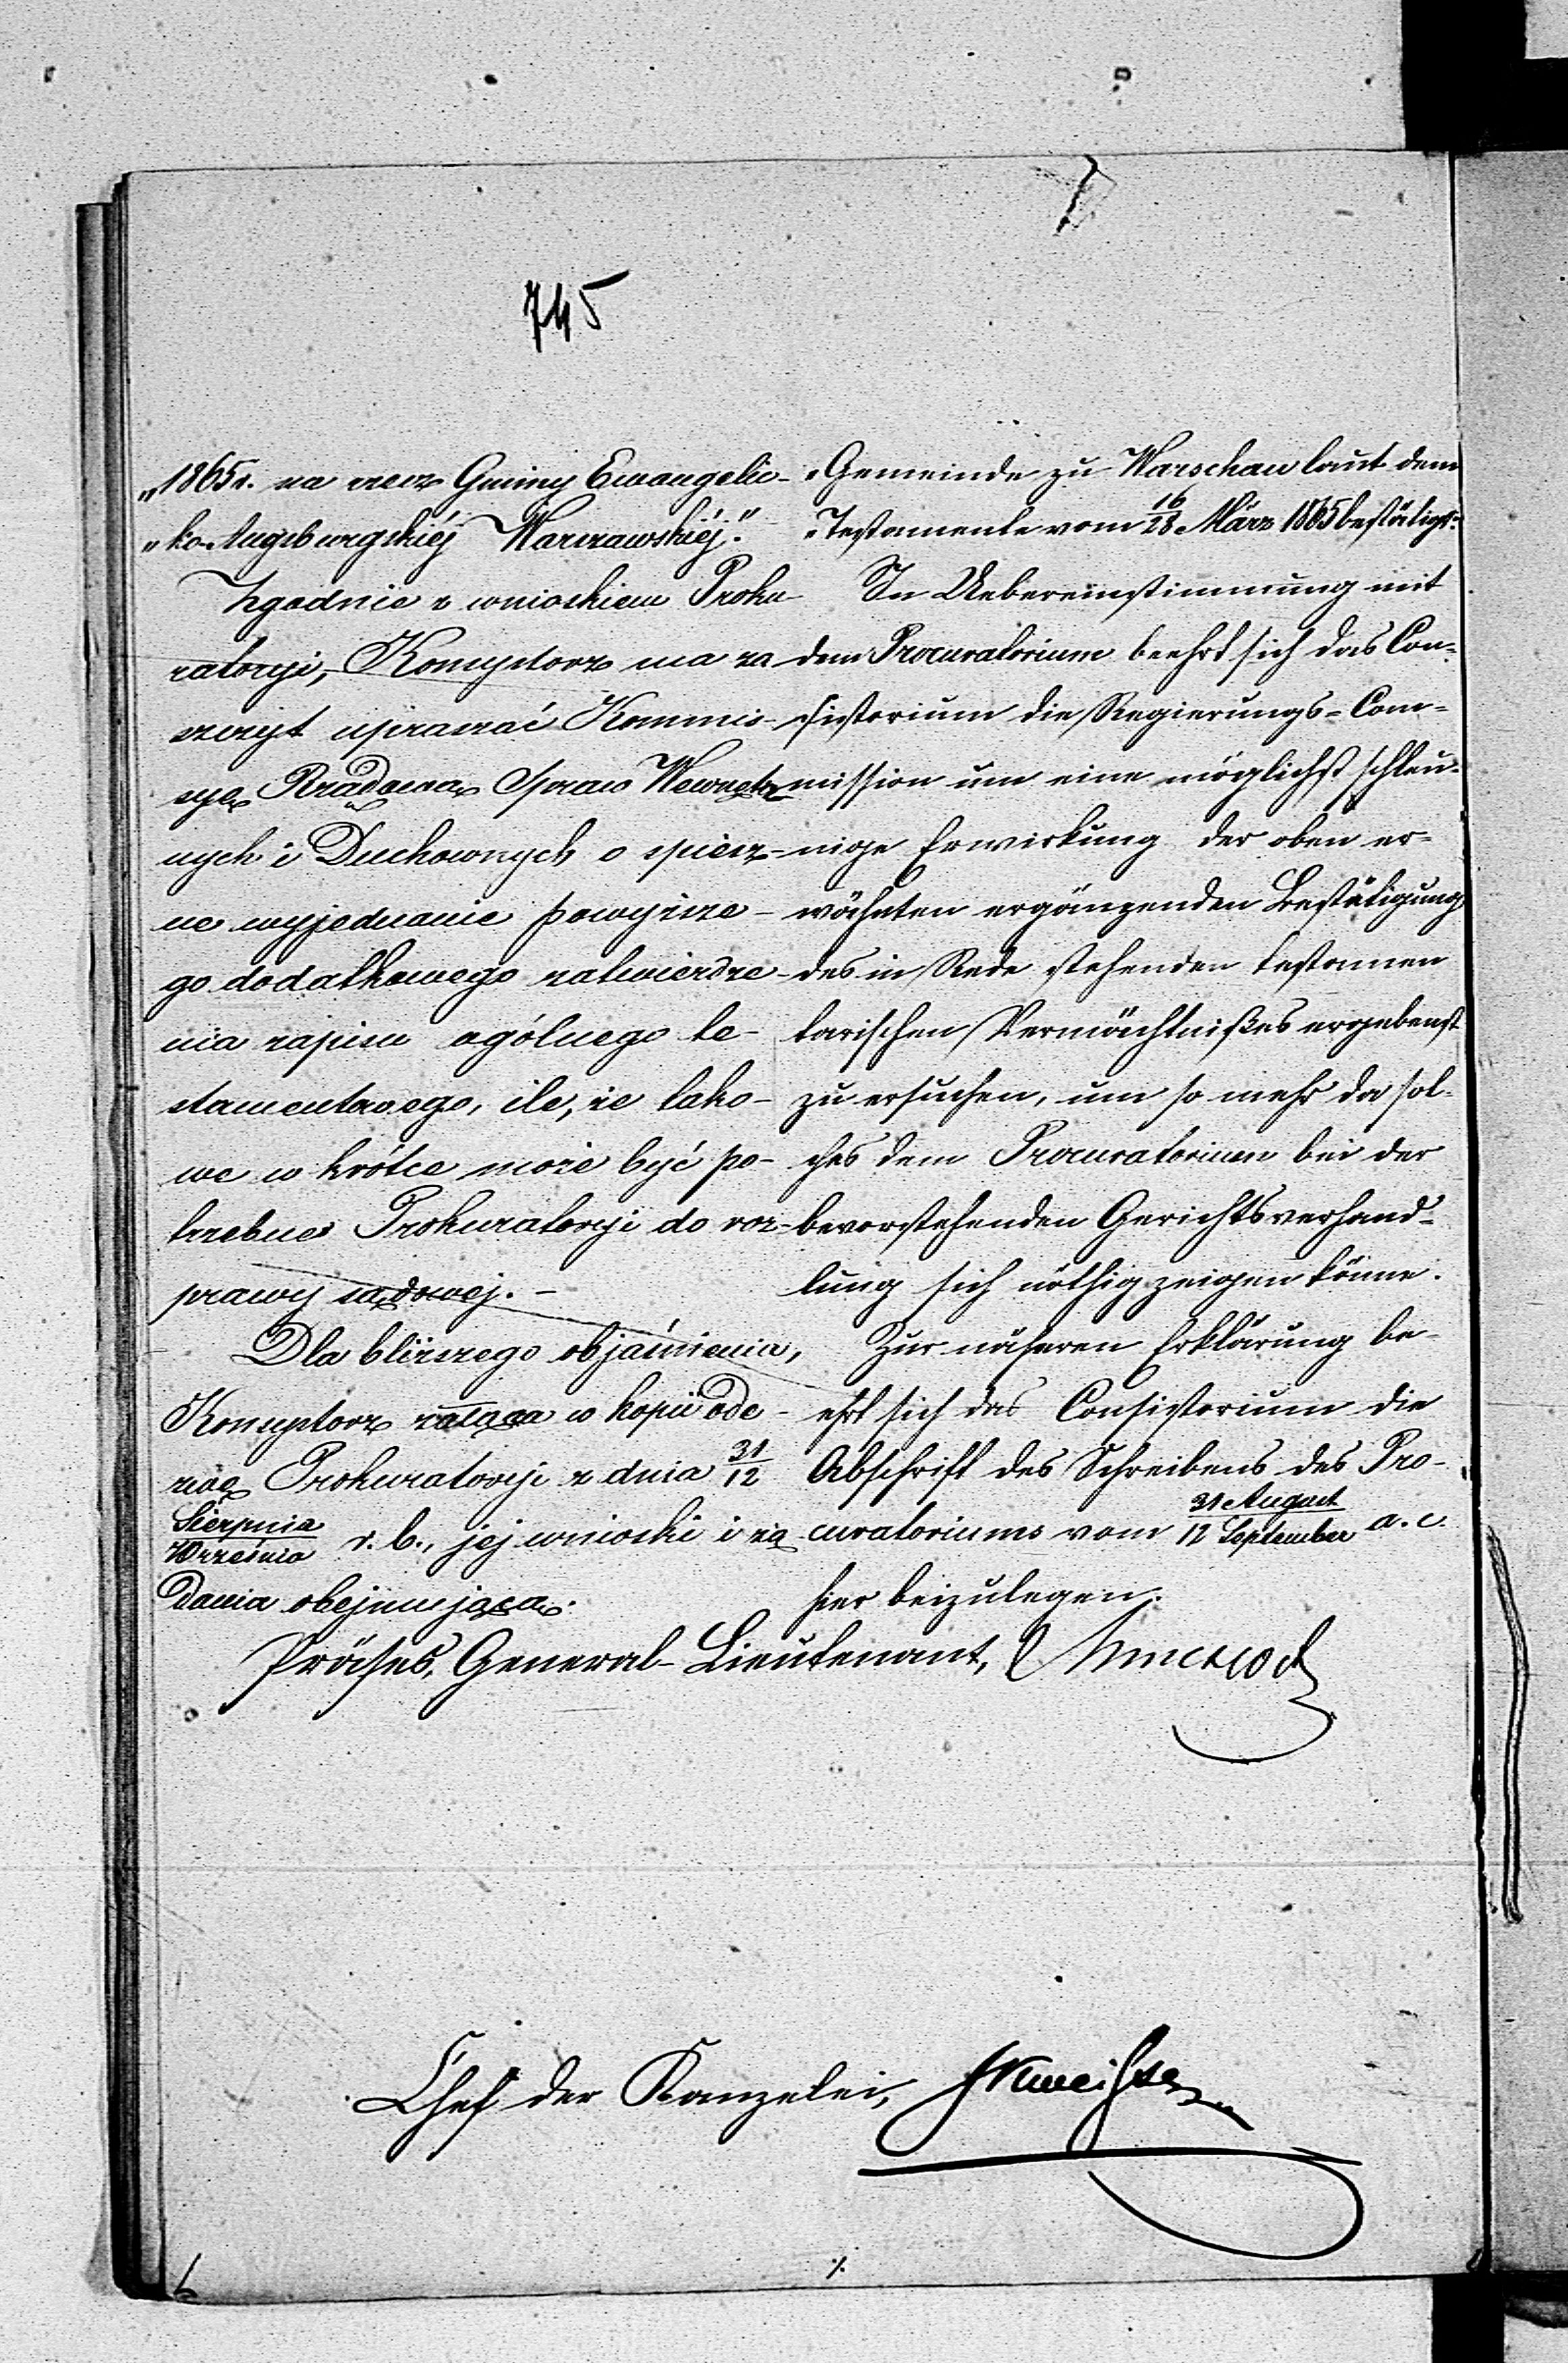 745
„1865 r. na rzecz Gminy Ewangelic-
„ko-Augsburgskiéj Warszawskiéj."
Zgodnie z wnioskiem Proku-
ratoryi, Konsystorz ma za-
szczyt upraszać Kommis-
syę Rządową Spraw Wewnętrz
nych i Duchownych o spiesz-
ne wyjednanie powyższe-
go dodatkowego zatwierdze-
nia zapisu ogólnego te-
stamentowego, ile, że tako-
we w krótce może być po-
trzebne Prokuratoryi do roz-
prawy sądowej. –
Dla bliższego objaśnienia,
Konsystorz załącza w kopii ode-
zwę Prokuratoryi z dnia 31/12
Sierpnia/Września r. b., jej wnioski i żą-
dania obejmującą.
„Gemeinde zu Warschau laut dem
„Testamente vom 16/28 März 1865 bestätigt."
In Uebereinstimmung mit
dem Procuratorium beehrt sich das Con-
sistorium die Regierungs-Com-
mission um eine möglichst schleu-
nige Erwirkung der oben er-
wähnten ergänzenden Bestätigung
des in Rede stehenden testamen
tarischen Vermächtnißes ergebenst
zu ersuchen, um so mehr da sol-
ches dem Procuratorium bei der
bevorstehenden Gerichtsverhand-
lung sich nöthig zeigen könne.
Zur näheren Erklärung be-
ehrt sich das Consistorium die
Abschrift des Schreibens des Pro-
curatoriums vom 31 August/12 September a. c.
hier beizulegen.
Präses, General-Lieutenant,
Chef der Kanzelei,